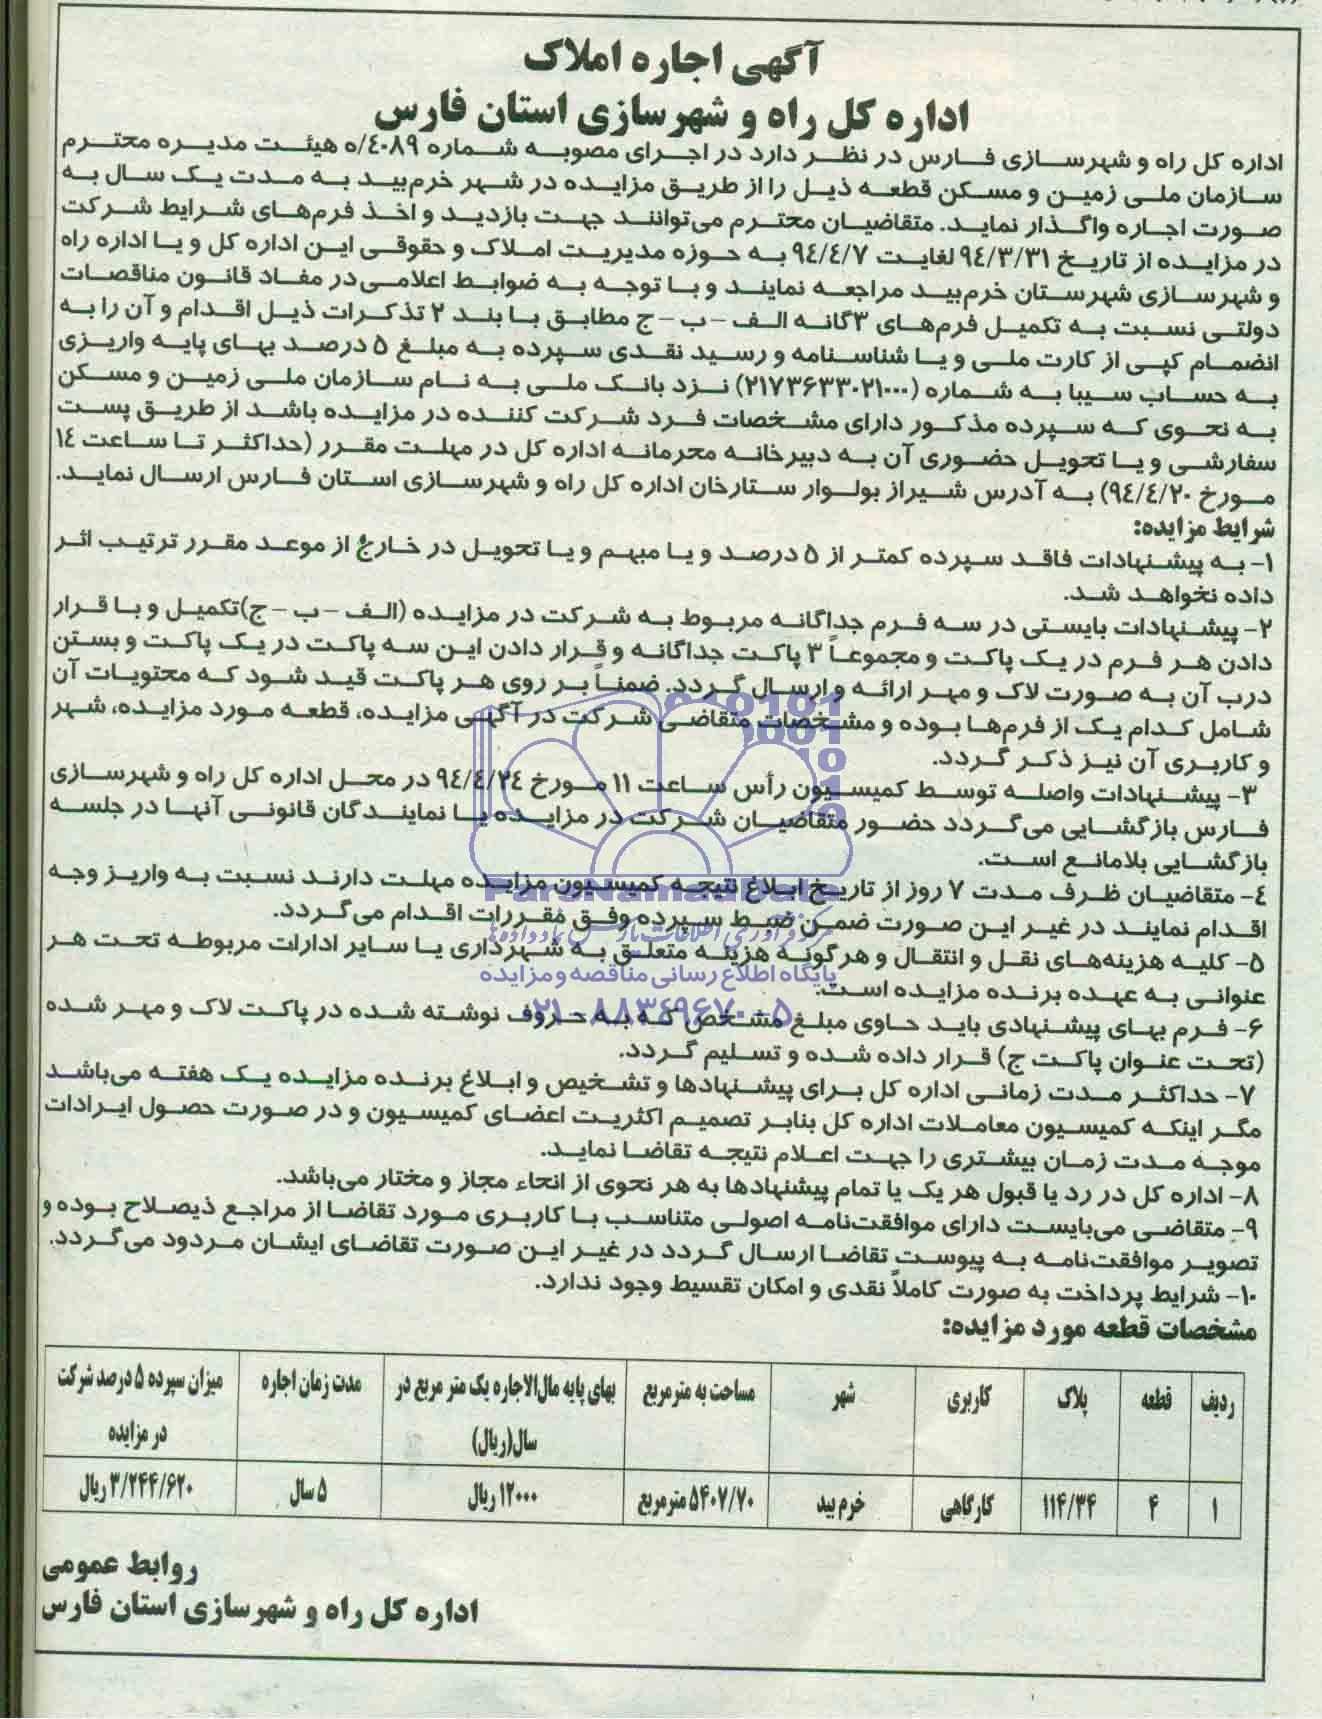 آگهی اجاره املاک
اداره کل راه و شهرسازی استان فارس
اداره کل راه و شهرسازی فارس در نظر دارد در اجرای مصوبه شماره ۵/۴۰۸۹ هیئت مدیره محترم
سازمان ملی زمین و مسکن قطعه ذیل را از طریق مزایده در شهر خرم‌بید به مدت یک سال به
صورت اجاره واگذار نماید. متقاضیان محترم می‌توانند جهت بازدید و اخذ فرم‌های شرایط شرکت
در مزایده از تاریخ ۹۴/۳/۳۱ لغایت ۹۴/۴/۷ به حوزه مدیریت املاک و حقوقی این اداره کل و یا اداره راه
و شهرسازی شهرستان خرم‌بید مراجعه نمایند و با توجه به ضوابط اعلامی در مفاد قانون مناقصات
دولتی نسبت به تکمیل فرم‌های ۳گانه الف -ب -ج مطابق با بند ۲ تذکرات ذیل اقدام و آن را به
انضمام کپی از کارت ملی و یا شناسنامه و رسید نقدی سپرده به مبلغ ۵ درصد بهای پایه واریزی
به حساب سیبا به شماره (۲۱۷۳۶۳۳۰۲۱۰۰۰) نزد بانک ملی به نام سازمان ملی زمین و مسکن
به نحوی که سپرده مذکور دارای مشخصات فرد شرکت کننده در مزایده باشد از طریق پست
سفارشی و یا تحویل حضوری آن به دبیرخانه محرمانه اداره کل در مهلت مقرر (حداکثر تا ساعت ۱۴
مورخ ۹۴/۴/۲۰) به آدرس شیراز بولوار ستارخان اداره کل راه و شهرسازی استان فارس ارسال نماید.
شرایط مزایده:
۱- به پیشنهادات فاقد سپرده کمتر از ۵ درصد و یا مبهم و یا تحویل در خارج از موعد مقرر ترتیب اثر
داده نخواهد شد.
۲- پیشنهادات بایستی در سه فرم جداگانه مربوط به شرکت در مزایده (الف -ب -ج)تکمیل و با قرار
دادن هر فرم در یک پاکت و مجموعاً ۳ پاکت جداگانه و قرار دادن این سه پاکت در یک پاکت و بستن
درب آن به صورت لاک و مهر ارائه و ارسال گردد. ضمناً بر روی هر پاکت قید شود که محتویات آن
شامل کدام یک از فرم‌ها بوده و مشخصات متقاضی شرکت در آگهی مزایده، قطعه مورد مزایده، شهر
و کاربری آن نیز ذکر گردد.
۳- پیشنهادات واصله توسط کمیسیون رأس ساعت ۱۱ مورخ ۹۴/۴/۲۴ در محل اداره کل راه و شهرسازی
فارس بازگشایی می‌گردد حضور متقاضیان شرکت در مزایده یا نمایندگان قانونی آنها در جلسه
بازگشایی بلامانع است.
۴- متقاضیان ظرف مدت ۷ روز از تاریخ ابلاغ نتیجه کمیسیون مزایده مهلت دارند نسبت به واریز وجه
اقدام نمایند در غیر این صورت ضمن ضبط سپرده وفق مقررات اقدام می‌گردد.
۵- کلیه هزینه‌های نقل و انتقال و هرگونه هزینه متعلق به شهرداری یا سایر ادارات مربوطه تحت هر
عنوانی به عهده برنده مزایده است.
۶- فرم بهای پیشنهادی باید حاوی مبلغ مشخص که به حروف نوشته شده در پاکت لاک و مهر شده
(تحت عنوان پاکت ج) قرار داده شده و تسلیم گردد.
۷- حداکثر مدت زمانی اداره کل برای پیشنهادها و تشخیص و ابلاغ برنده مزایده یک هفته می‌باشد
مگر اینکه کمیسیون معاملات اداره کل بنابر تصمیم اکثریت اعضای کمیسیون و در صورت حصول ایرادات
موجه مدت زمان بیشتری را جهت اعلام نتیجه تقاضا نماید.
۸- اداره کل در رد یا قبول هر یک یا تمام پیشنهادها به هر نحوی از انحاء مجاز و مختار می‌باشد.
۹- متقاضی می‌بایست دارای موافقت‌نامه اصولی متناسب با کاربری مورد تقاضا از مراجع ذیصلاح بوده و
تصویر موافقت‌نامه به پیوست تقاضا ارسال گردد در غیر این صورت تقاضای ایشان مردود می‌گردد.
۱۰- شرایط پرداخت به صورت کاملاً نقدی و امکان تقسیط وجود ندارد.
مشخصات قطعه مورد مزایده:
ردیف قطعه پلاک کاربری شهر مساحت به مترمربع بهای پایه مال‌الاجاره یک متر مربع در سال(ریال) مدت زمان اجاره میزان سپرده ۵ درصد شرکت در مزایده
۱ ۴ ۱۱۴/۳۴ کارگاهی خرم بید ۵۴۰۷/۷۰ مترمربع ۱۲۰۰۰ ریال ۵ سال ۳/۲۴۴/۶۲۰ ریال
روابط عمومی
اداره کل راه و شهرسازی استان فارس
ParsNamadData
پایگاه اطلاع رسانی مناقصه و مزایده
۰۲۱-۸۸۳۴۹۶۷۰-۵